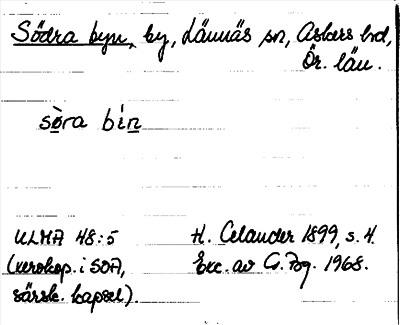 Södra byn, by, Lännäs sn, Askers hd,
Ör. län.
söra bin
ULMA 48:5
(xerokop. i SOA,
särsk. kapsel).
H. Celander 1899, s. 4.
Exc. av G. Fog. 1968.